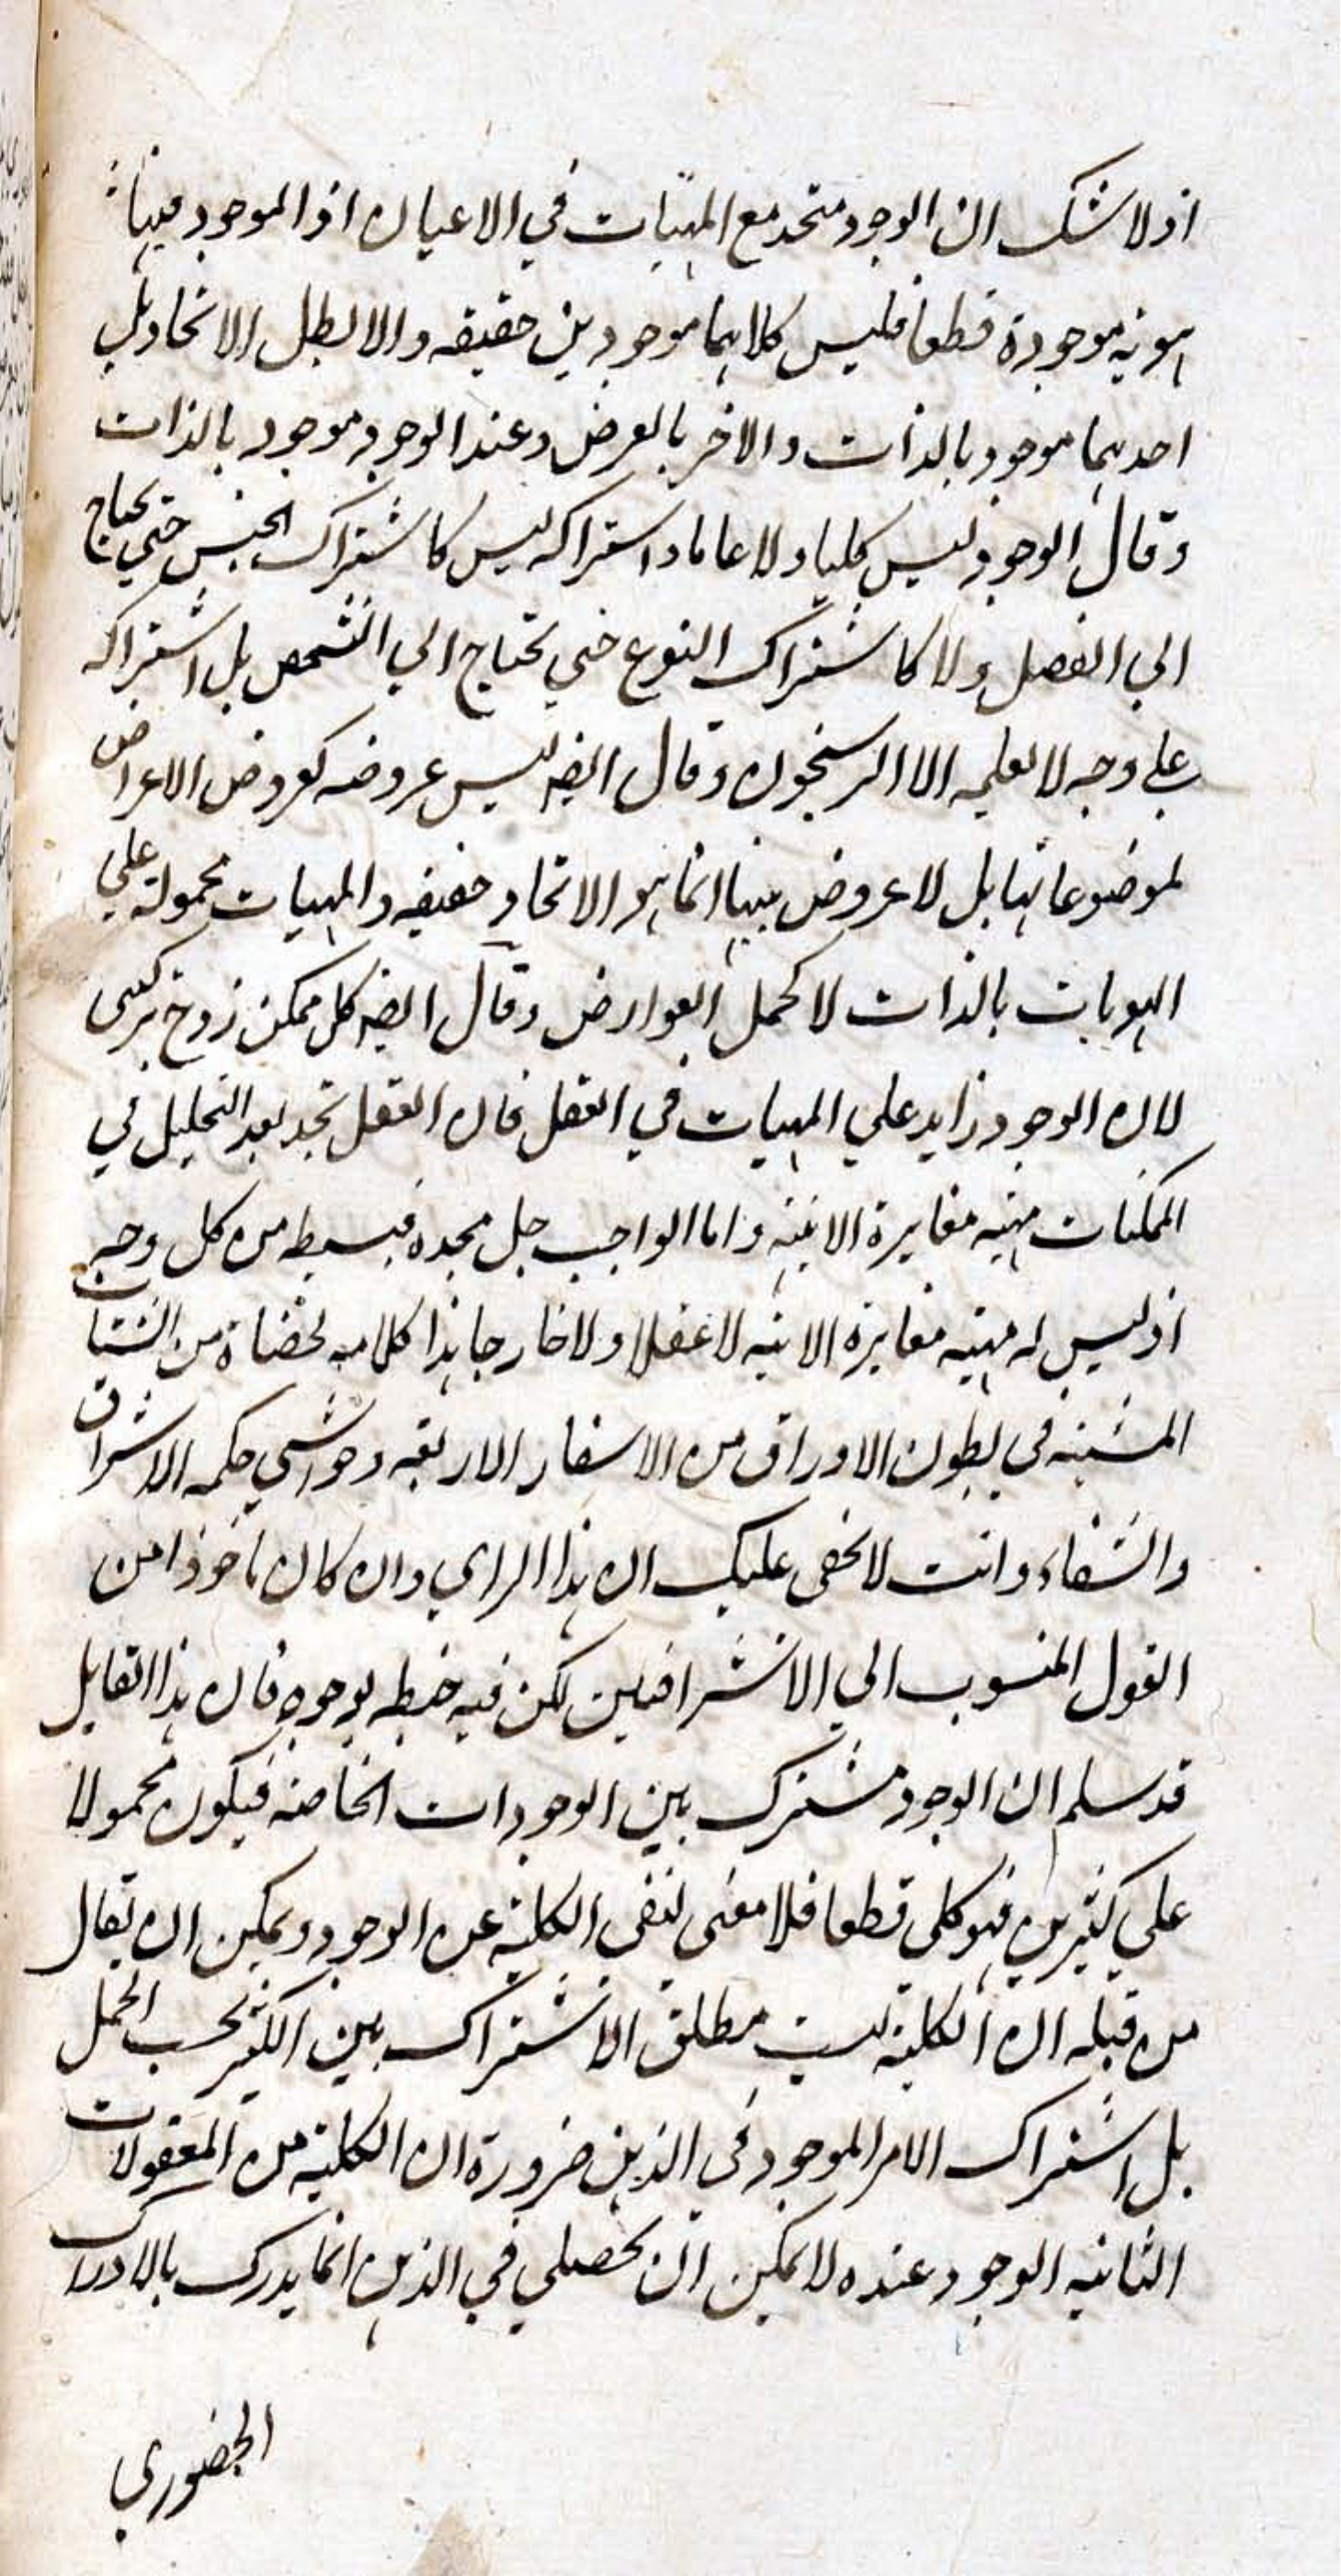 اذ لا شك ان الوجود متحد مع المهيات في الاعيان اذ الموجود فيها
هوية موجودة قطعا فليس كلاهما موجودين حقيقه والا لبطل الاتحاد بل
احديهما موجود بالذات والاخر بالعرض وعند الوجود موجود بالذات
وقال الوجود ليس كليا ولا عاما واشتراكه ليس كاشتراك الجنس حتي يحتاج
الي الفصل ولا كاشتراك النوع حتي يحتاج الي التشخص بل اشتراكه
علي وجه لا يعلمه الا الراسخون وقال ايضه ليس عروضه كعروض الاعراض
لموضوعاتها بل لا عروض بينها انما هو الاتحاد حقيقه والمهيات محمولة علي
الهويات بالذات لا كحمل العوارض وقال ايضه كل ممكن زوج تركيبى
لان الوجود زايد علي المهيات في العقل فان العقل يجد بعد التحليل في
الممكنات مهيه مغايرة الانيته واما الواجب جل مجده فبسيط من كل وجه
اذ ليس له مهيه مغايرة الانيه لا عقلا ولا خارجا هذا كلامه لخصناه من الشتات
المشتبه في بطون الاوراق من الاسفار الاربعه وحواشي حكمه الاشراق
والشفاء وانت لا يخفى عليك ان هذا الراي وان كان ماخوذا من
القول المنسوب الي الاشراقيين لكن فيه خبطه بوجوه فان هذا القايل
قد سلم ان الوجود مشترك بين الوجودات الخاصه فيكون محمولا
علي كثيرين فهو كلي قطعا فلا معنى لنفى الكلية عن الوجود ويمكن ان يقال
من قبله ان الكليه ليست مطلق الاشتراك بين الكثير بحسب الحمل
بل اشتراك الامر الموجود في الذهن ضرورة ان الكلية من المعقولات
الثانيه الوجود عنده لا يمكن ان يحصلي في الذهن انما يدرك بالادراك
الحضوري